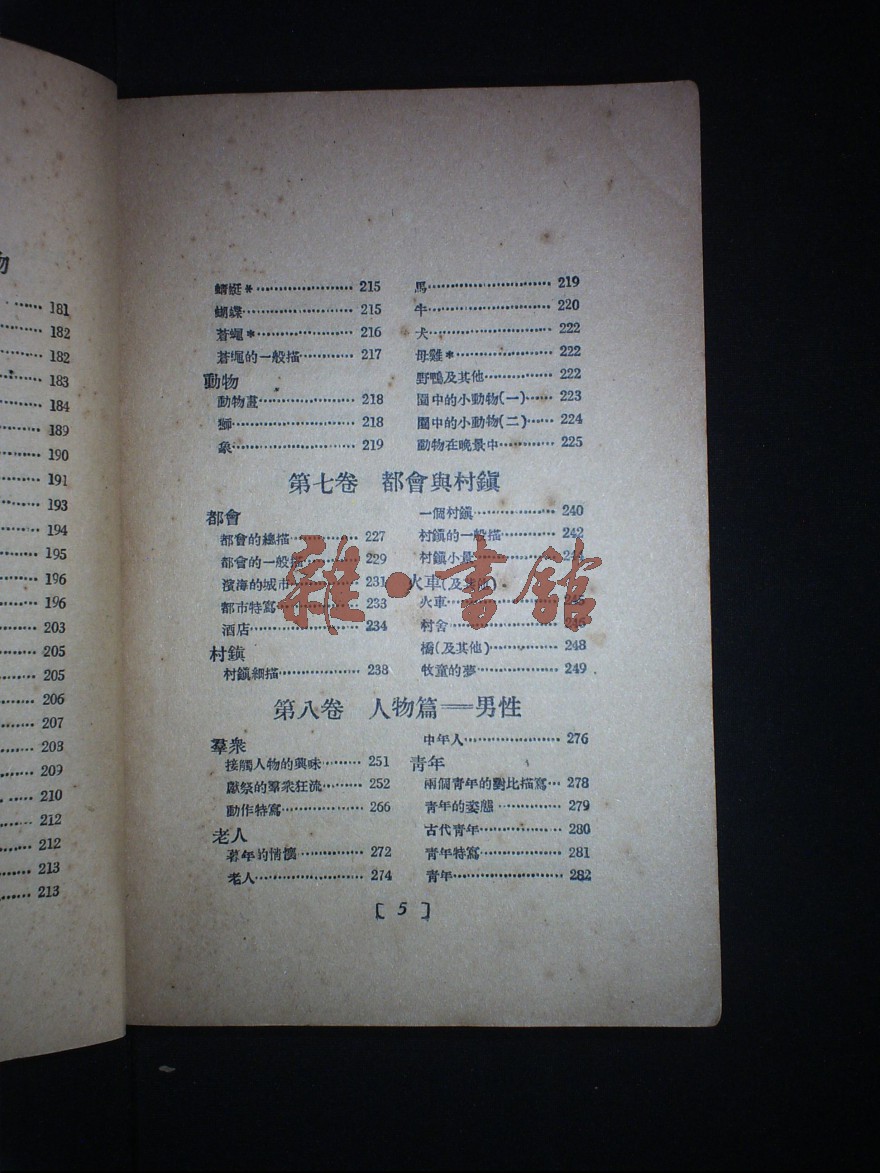 物
181
182
182
183
184
189
190
191
193
194
195
196
196
203
205
205
206
207
208
209
210
212
212
213
213
蜻蜓*………………… 215
蝴蝶………………… 215
蒼蠅*………………… 216
蒼蠅的一般描………… 217
動物
動物畫………………… 218
獅……………………… 218
象……………………… 219
馬……………………… 219
牛……………………… 220
犬……………………… 222
母雞*………………… 222
野鴨及其他…………… 222
園中的小動物(一)…… 223
園中的小動物(二)…… 224
動物在晚景中………… 225
第七卷 都會與村鎭
都會
都會的總描…………… 227
都會的一般描………… 229
濱海的城市…………… 231
都市特寫……………… 233
酒店…………………… 234
村鎭
村鎭細描……………… 238
一個村鎭……………… 240
村鎭的一般描………… 242
村鎭小景
火車(及其他)
火車…………………
村舍…………………
橋(及其他)…………… 248
牧童的夢……………… 249
第八卷 人物篇——男性
羣衆
接觸人物的興味……… 251
獻祭的羣衆狂流……… 252
動作特寫……………… 266
老人
暮年的情懷…………… 272
老人…………………… 274
中年人………………… 276
靑年
兩個靑年的對比描寫… 278
靑年的姿態…………… 279
古代靑年……………… 280
靑年特寫……………… 281
靑年…………………… 282
[ 5 ]
雜·書館